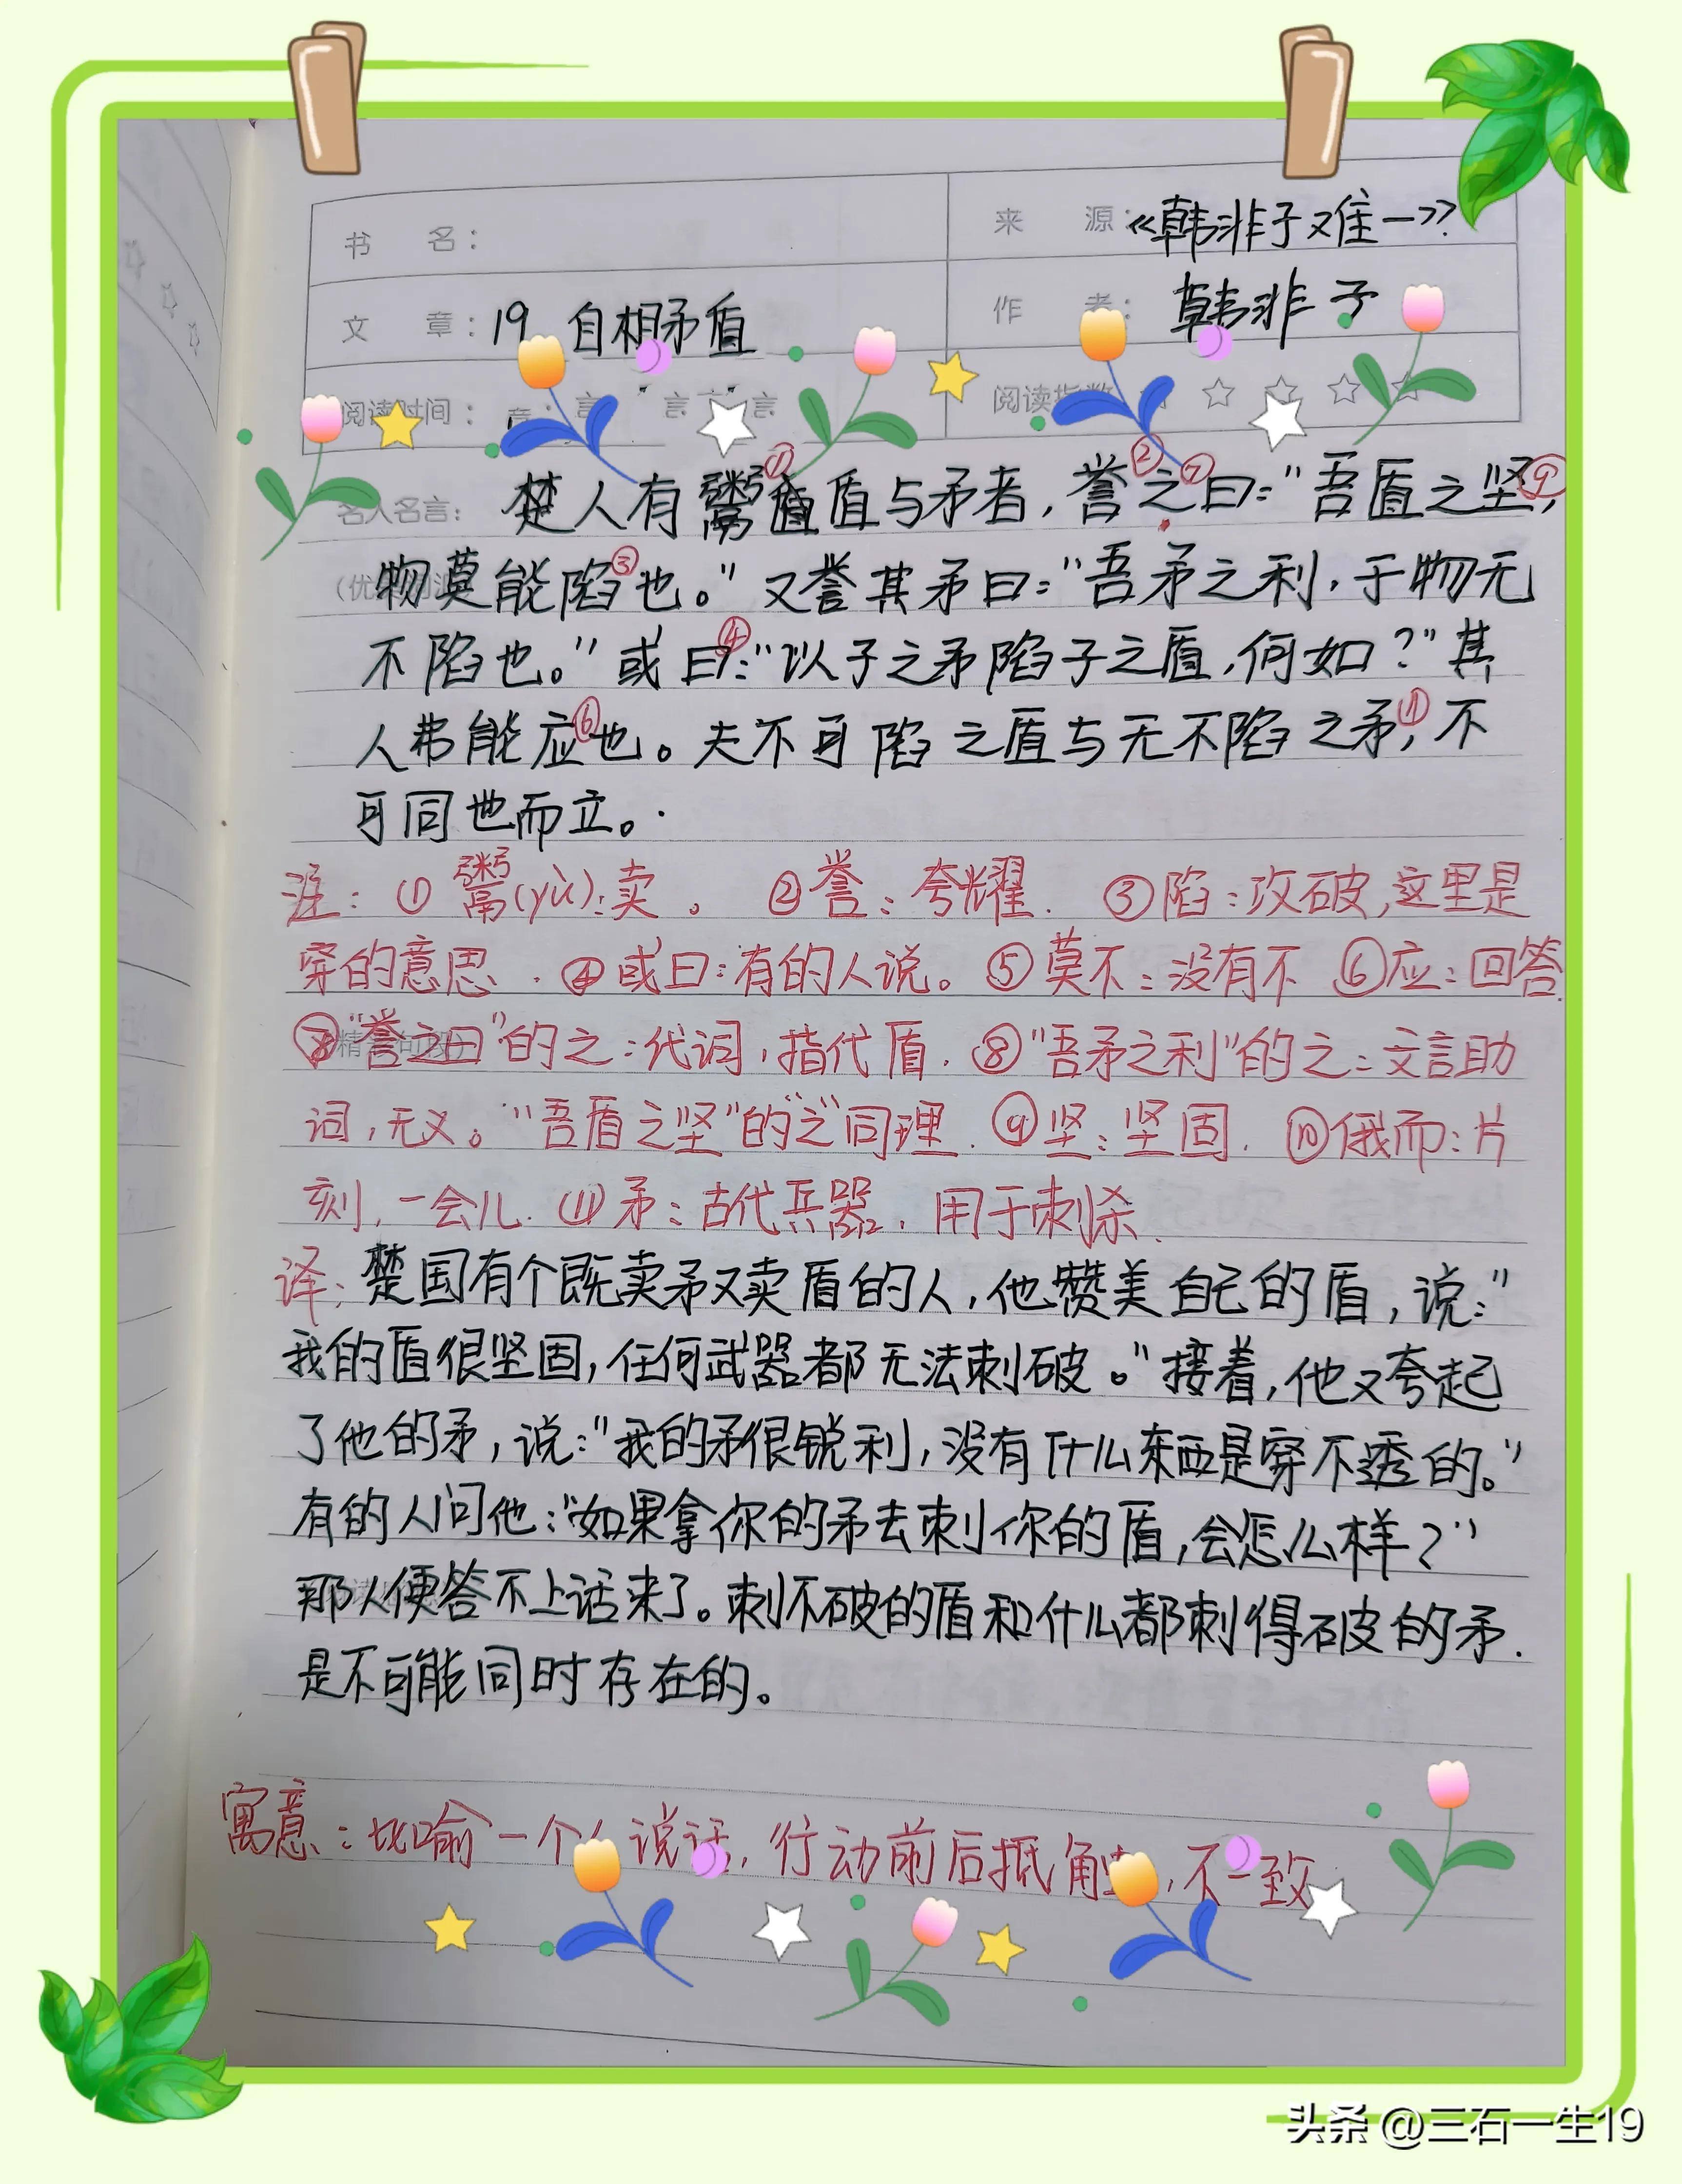 书 名：
来 源：《韩非子难一》
文 章：19 自相矛盾
作 者：韩非子
阅读时间：
阅读指数
名人名言：
楚人有鬻①盾与矛者，誉②之⑦曰："吾盾之坚⑨，
物莫能陷③也。"又誉其矛曰："吾矛之利，于物无
不陷也。"或曰④："以子之矛陷子之盾，何如？"其
人弗能应⑥也。夫不可陷之盾与无不陷之矛⑪，不
可同世而立。
注：①鬻(yù)：卖。 ②誉：夸耀. ③陷：攻破，这里是
穿的意思. ④或曰：有的人说。⑤莫不：没有不 ⑥应：回答.
⑦"誉之曰"的之：代词，指代盾. ⑧"吾矛之利"的之：文言助
词，无义。"吾盾之坚"的"之"同理. ⑨坚：坚固. ⑩俄而：片
刻，一会儿. ⑪矛：古代兵器，用于刺杀.
译：楚国有个既卖矛又卖盾的人，他赞美自己的盾，说："
我的盾很坚固，任何武器都无法刺破。"接着，他又夸起
了他的矛，说："我的矛很锐利，没有什么东西是穿不透的。"
有的人问他："如果拿你的矛去刺你的盾，会怎么样？"
那人便答不上话来了。刺不破的盾和什么都刺得破的矛.
是不可能同时存在的。
寓意：比喻一个人说话，行动前后抵触，不一致
头条 @三石一生19